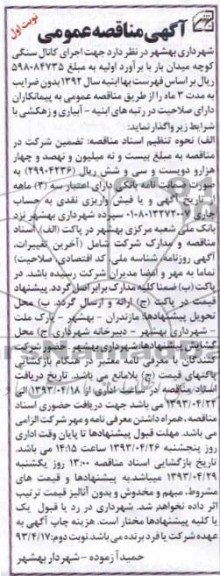 نوبت اول
آگهی مناقصه عمومی
شهرداری بهشهر در نظر دارد جهت اجرای کانال سنگی
کوچه میدان بار با برآورد اولیه به مبلغ ۵۹۸۰۸۴۷۳۵
ریال بر اساس فهرست بها ابنیه سال ۱۳۹۲ بدون ضرایب
به مدت ۳ ماه را از طریق مناقصه عمومی به پیمانکاران
دارای صلاحیت در رتبه های ابنیه - آبیاری و زهکشی با
شرایط زیر واگذار نماید:
الف) نحوه تنظیم اسناد مناقصه: تضمین شرکت در
مناقصه به مبلغ بیست و نه میلیون و نهصد و چهار
هزار و دویست و سی و شش ریال (۲۹۹۰۴۲۳۶) به
صورت ضمانت نامه بانکی دارای اعتبار سه (۳) ماهه
از تاریخ آگهی و یا فیش واریزی نقدی به حساب
جاری ۰۱۰۸۰۱۳۲۷۲۰۰۷ سپرده شهرداری بهشهر نزد
بانک ملی شعبه مرکزی بهشهر در پاکت (الف) اسناد
مناقصه و مدارک شرکت شامل (آخرین تغییرات،
آگهی روزنامه، شناسه ملی، کد اقتصادی، صلاحیت)
تماما به مهر و امضا مدیران شرکت رسیده باشد. در
پاکت (ب) ضمنا کلیه مدارک برابر اصل گردد. پیشنهاد
قیمت در پاکت (ج) ارائه و ارسال گردد. ب) محل
تحویل پیشنهادها: مازندران - بهشهر - پارک ملت
- شهرداری بهشهر - دبیرخانه شهرداری ج) محل
گشایش پیشنهادها: شهرداری بهشهر حضور شرکت
کنندگان با معرفی نامه معتبر در هنگام بازگشایی
پاکتهای قیمت (ج) بلامانع می باشد. تاریخ دریافت
اسناد مناقصه در ساعت اداری از ۱۳۹۳/۰۴/۱۸ الی
۱۳۹۳/۰۴/۲۲ می باشد جهت دریافت حضوری اسناد
مناقصه، همراه داشتن معرفی نامه و مهر شرکت الزامی
می باشد. مهلت قبول پیشنهادها تا پایان وقت اداری
روز پنجشنبه ۱۳۹۳/۰۴/۲۶ ساعت ۱۴:۱۵ می باشد.
تاریخ بازگشایی اسناد مناقصه ۱۳:۰۰ روز یکشنبه
۱۳۹۳/۰۴/۲۹ میباشد به پیشنهادها و قیمت های
مشروط، مبهم و مخدوش و بدون آنالیز قیمت ترتیب
اثر داده نخواهد شد. شهرداری در رد یا قبول یک
یا کلیه پیشنهادها مختار است. هزینه چاپ آگهی به
عهده شرکت یا فرد برنده می باشد. نوبت دوم: ۹۳/۴/۱۷
حمید آزموده - شهردار بهشهر